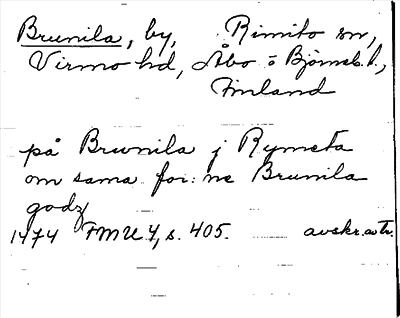 Brunila, by, Rimito sn,
Virmo hd, Åbo o Björneb. l.,
Finland
på Brunila j Rymeta
om sama for: ne Brunila
godz
1474 FMU 4, s. 405. avskr. av tr.